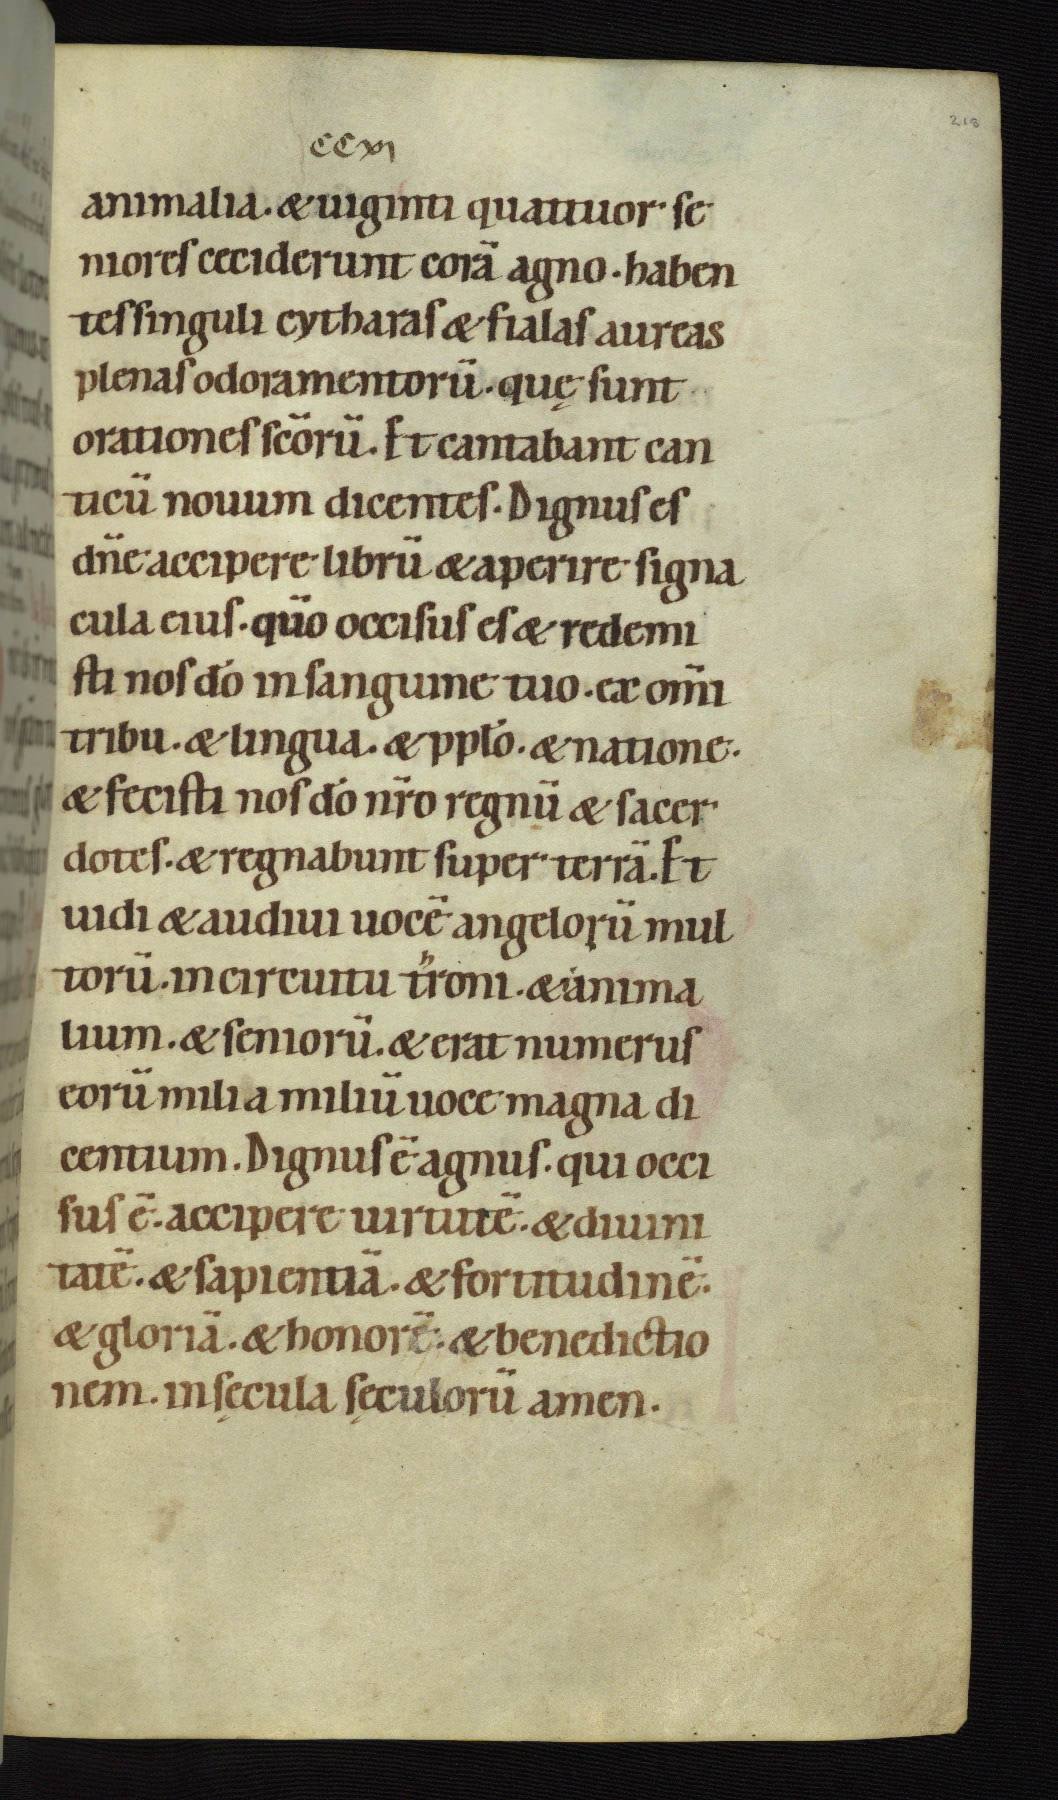 218
CCXI
animalia. & uiginti quattuor se
niores ceciderunt corā agno. haben
tes singuli cytharas & fialas aureas
plenas odoramentorū. quę sunt
orationes scōrū. Et cantabant can
ticū nouum dicentes. Dignus es
dn̄e accipere librū & aperire signa
cula eius. qūo occisus es & redemi
sti nos dō in sanguine tuo. ex om̄i
tribu. & lingua. & pplō. & natione.
& fecisti nos dō nr̄o regnū & sacer
dotes. & regnabunt super terrā. Et
uidi & audiui uocē angelorū mul
torū. in circuitu troni. & anima
lium. & seniorū. & erat numerus
eorū milia miliū uoce magna di
centium. Dignus ē agnus. qui occi
sus ē. accipere uirtutē. & diuini
tatē. & sapientiā. & fortitudinē.
& gloriā. & honorē. & benedictio
nem. in sęcula sęculorū amen.